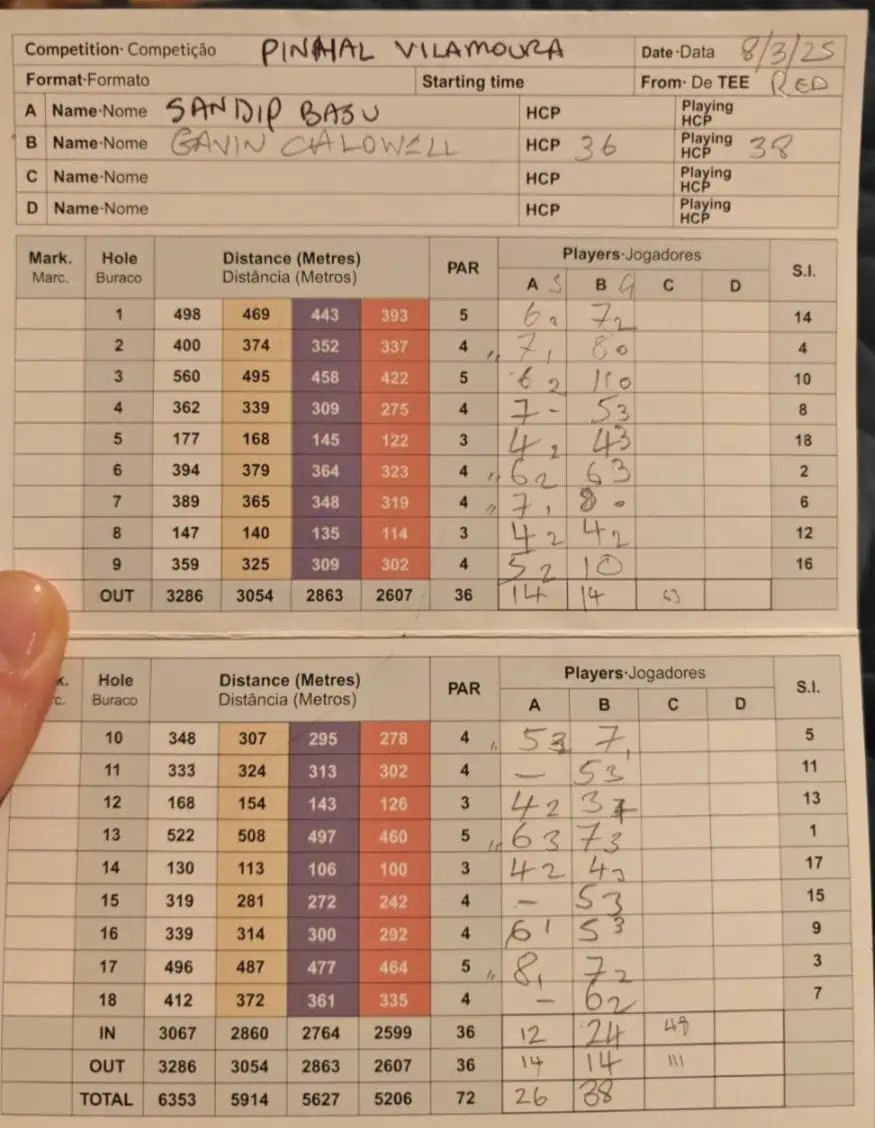 Competition· Competição PINHAL VILAMOURA Date·Data 8/3/25
Format·Formato Starting time From· De TEE RED
A Name·Nome SANDIP BASU HCP Playing HCP
B Name·Nome GAVIN CALDWELL HCP 36 Playing HCP 38
C Name·Nome HCP Playing HCP
D Name·Nome HCP Playing HCP
Mark. Hole Distance (Metres) PAR Players·Jogadores S.I.
Marc. Buraco Distância (Metros) A S B G C D
1 498 469 443 393 5 6 2 7 2 14
2 400 374 352 337 4 7 1 8 0 4
3 560 495 458 422 5 6 2 11 0 10
4 362 339 309 275 4 7 - 5 3 8
5 177 168 145 122 3 4 2 4 3 18
6 394 379 364 323 4 6 2 6 3 2
7 389 365 348 319 4 7 1 8 0 6
8 147 140 135 114 3 4 2 4 2 12
9 359 325 309 302 4 5 2 10 16
OUT 3286 3054 2863 2607 36 14 14 63
k. Hole Distance (Metres) PAR Players·Jogadores S.I.
rc. Buraco Distância (Metros) A B C D
10 348 307 295 278 4 5 3 7 1 5
11 333 324 313 302 4 - 5 3 11
12 168 154 143 126 3 4 2 3 4 13
13 522 508 497 460 5 6 3 7 3 1
14 130 113 106 100 3 4 2 4 3 17
15 319 281 272 242 4 - 5 3 15
16 339 314 300 292 4 6 1 5 3 9
17 496 487 477 464 5 8 1 7 2 3
18 412 372 361 335 4 - 6 2 7
IN 3067 2860 2764 2599 36 12 24 49
OUT 3286 3054 2863 2607 36 14 14 111
TOTAL 6353 5914 5627 5206 72 26 38